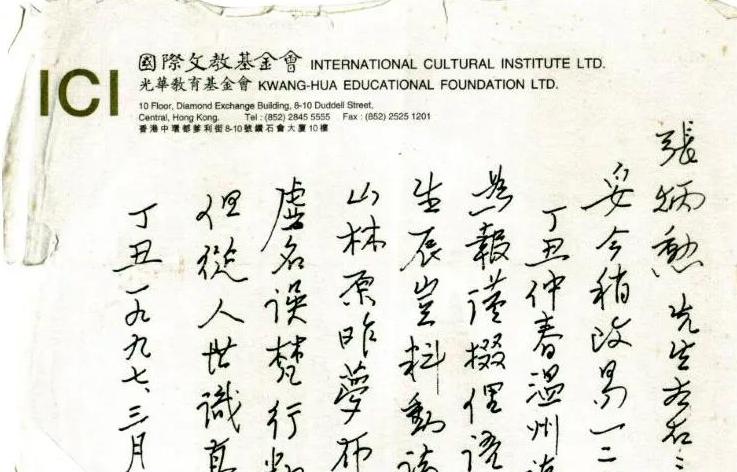 ICI
國際文教基金會 INTERNATIONAL CULTURAL INSTITUTE LTD.
光華教育基金會 KWANG-HUA EDUCATIONAL FOUNDATION LTD.
10 Floor, Diamond Exchange Building, 8-10 Duddell Street,
Central, Hong Kong. Tel : (852) 2845 5555 Fax : (852) 2525 1201
香港中環都爹利街8-10號鑽石會大廈10樓
張炳勳先生左右
妥今稍改易一二
丁丑仲春溫州
無報謹掇俚語
生辰豈料動
山林原昨夢
虛名誤梵行
但從人世識真
丁丑一九九七、三月